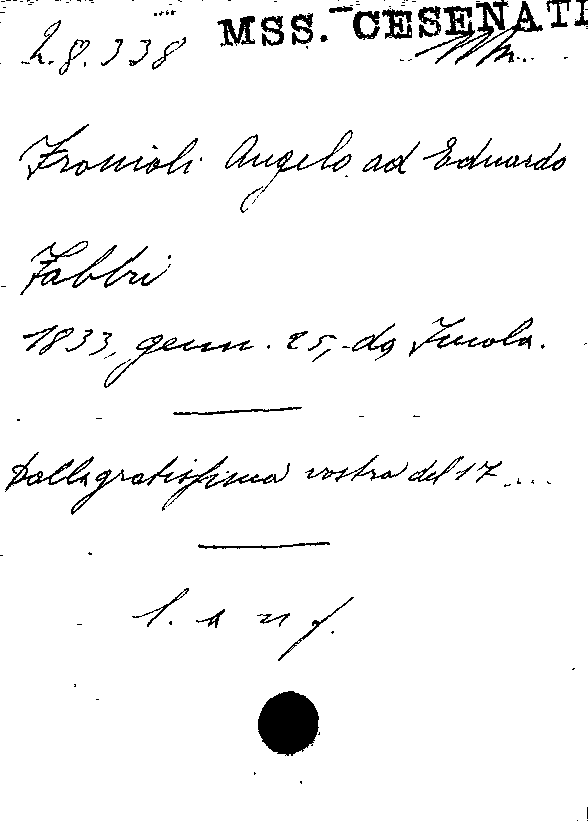 MSS. CESENATI
2.8.338
Angelo ad Eduardo
Fabbri
1833, genn. 25, da Imola.
Dalla gratissima vostra del 17 ....
l. a n f.